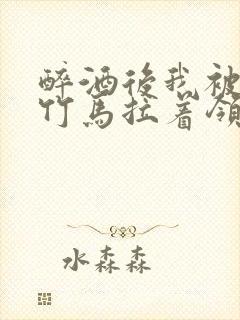 醉酒後我被
竹馬拉着領
水森森